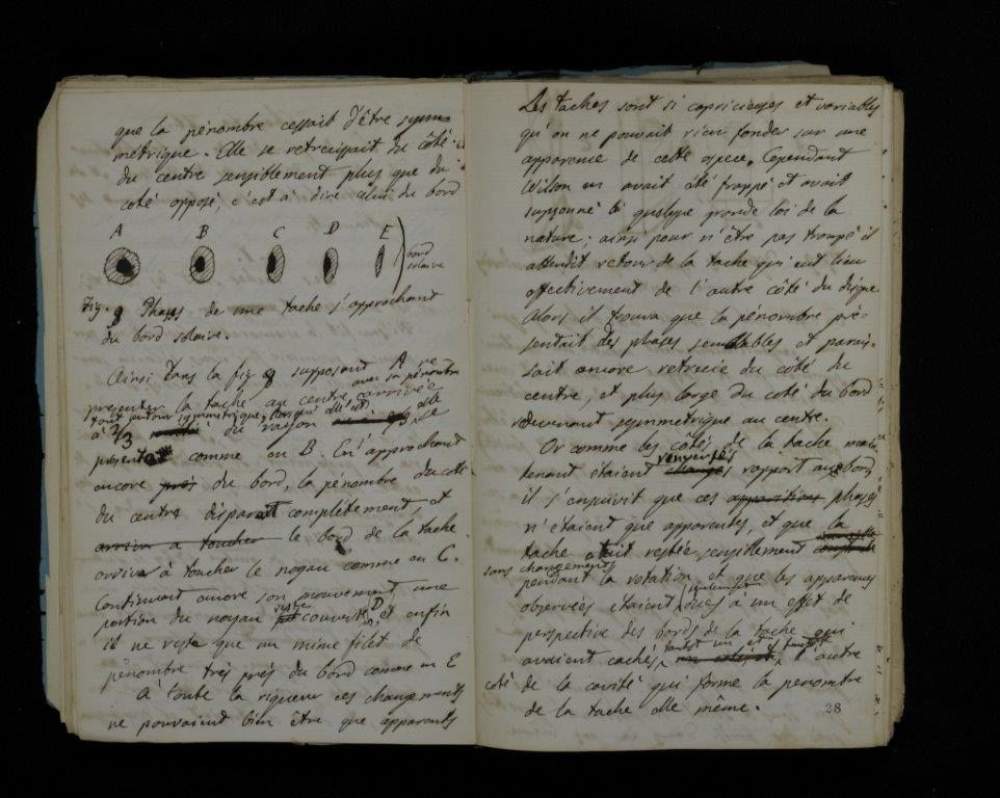 que la pénombre cessait d'être symmé
métrique. Elle se retrecissait du côté
du centre sensiblement plus que du
coté opposé, c'est à dire celui du bord
A B C D E
bord
solaire
Fig. 9 Phases de une tache s'approchant
du bord solaire.
Ainsi dans la fig 9 supposant A re
avec sa pénombre
présenter la tache au centre, arrivée
tout autour symmetrique, lorsque elle est
à 2/3 du rayon elle se
présenta comme en B. En s'approchant
encore près du bord, la pénombre du coté
du centre disparait complétement, et
arriva a toucher le bord de la tache
arriva à toucher le noyau comme en C.
Continuant encore son mouvement, une
portion du noyau reste couverte D, et enfin
il ne reste que un mime filet de
pénombre très près du bord comme en E
A toute la rigueur ces changements
ne pouvaient bien être que apparents
Les taches sont si capricieuses et variables
qu'on ne pouvait rien fonder sur une
apparence de cette espece. Cependant
Wilson en avait été frappé et avait
supçonné là quelque grande loi de la
nature: ainsi pour n'être pas trompé il
attendit retour de la tache qui eut lieu
effectivement de l'autre côté du disque
Alors il trouva que la pénombre pré-
sentait des phases semblables et parais-
sait encore retrecie du côté du
centre, et plus large du coté du bord
redevenant symmetrique au centre.
Or comme les côtés de la tache main
tenant étaient renversés rapport au bord,
il s'ensuivit que ces apparitions phases
n'étaient que apparentes, et que la
tache était restée sensiblement
sans changements
pendant la rotation et que les apparences
observées étaient seulement dues à un effet de
perspective des bords de la tache qui
avaient cachés tantôt un et tantôt l'autre
coté de la cavité qui forme la penombre
de la tache elle même.
28